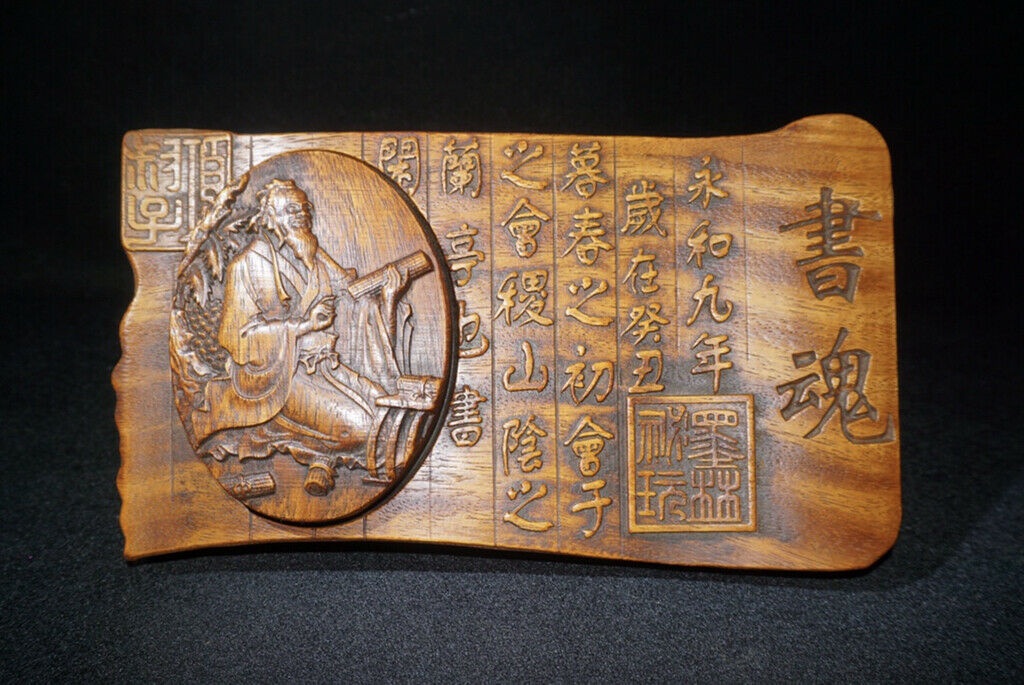 書魂
永和九年
歲在癸丑
墨林秘玩
暮春之初會于
之會稽山陰之
蘭亭也書